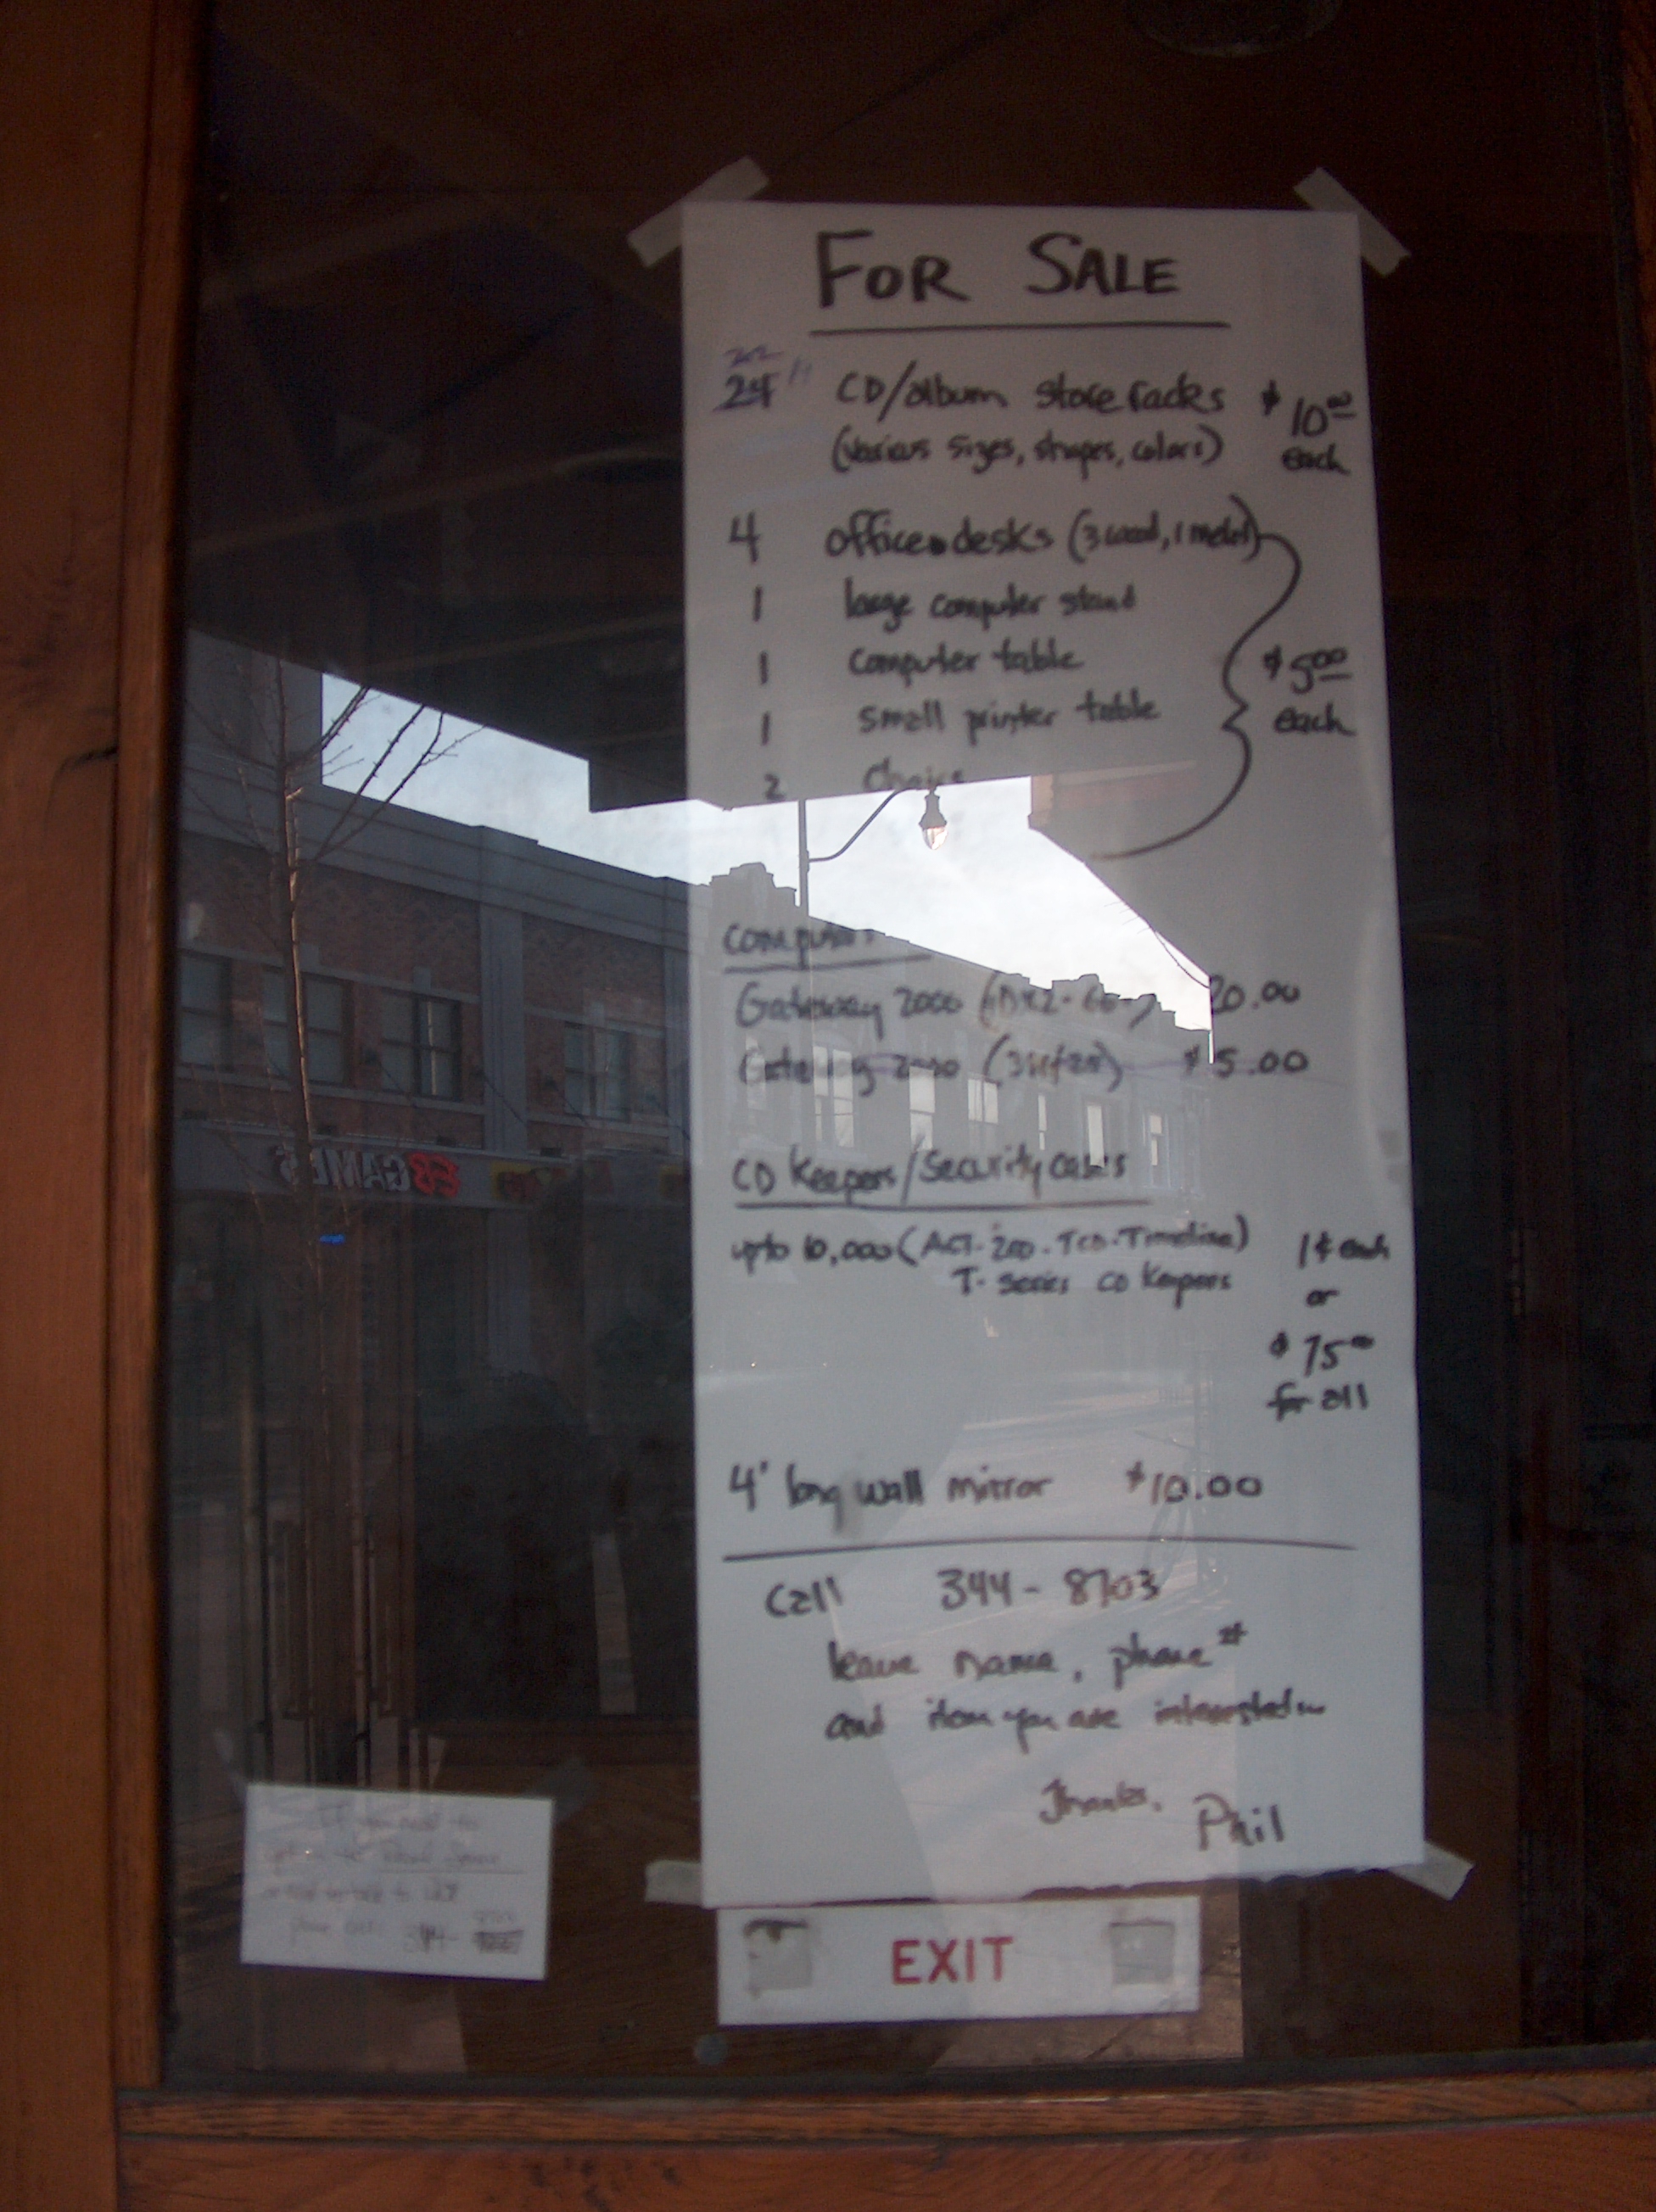 FOR SALE
24 11 CD/album store racks $10.00
(various sizes, shapes, colors) each
4 office desks (3 wood, 1 metal)
1 large computer stand
1 computer table $5.00
1 small printer table each
2 chairs
Computers
Gateway 2000 20.00
Gateway 2000 $5.00
CD Keepers/Security cases
upto 10,000 (ACT-200-TCD-Timeline) 1¢ each
T-Series CD Keepers or
$75.00
for all
4' long wall mirror $10.00
Call 344-8703
leave name, phone #
and item you are interested in
Thanks, Phil
EXIT
GAMES
344-